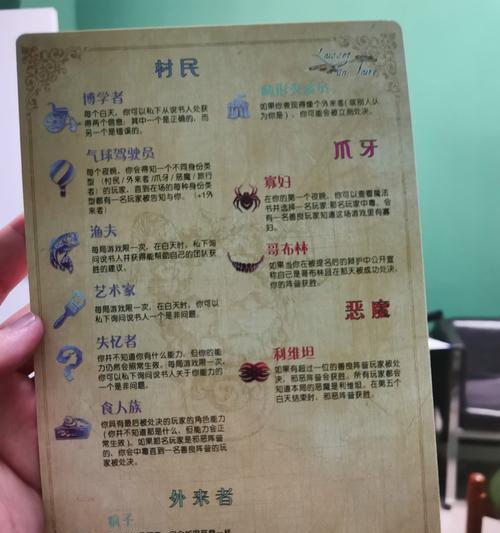 村民
博学者
每个白天，你可以私下从说书人处获
得两个信息：其中一个是正确的，而
另一个是错误的。
气球驾驶员
每个夜晚，你会得知一个不同身份类
型（村民/外来者/爪牙/恶魔/旅行
者）的玩家，直到在场的每种身份类
型都有一名玩家被告知与你。（+1外
来者）
渔夫
每局游戏限一次，在白天时，私下询
问说书人并获得能帮助自己的团队获
胜的建议。
艺术家
每局游戏限一次，在白天时，你可以
私下询问说书人一个是非问题。
失忆者
你并不知道你有什么能力。但你的能
力仍然会照常生效。每局游戏限一次，
你可以私下询问说书人关于你能力的
一个是非问题。
食人族
你具有最后被处决的玩家的角色能力
（你并不知道那是什么，但能力会正
常生效）。如果那名玩家是邪恶阵营
的，你会中毒直到一名善良阵营的玩
家被处决。
外来者
疯子
Laissez
un Faire
畸形秀演员
如果你表现得像个外来者（或别人认
为你是），你可能会被立刻处决。
爪牙
寡妇
在你的第一个夜晚，你可以查看魔法
书并选择一名玩家：那名玩家中毒。会
有一名善良玩家知道这场游戏里有寡
妇。
哥布林
如果当你在被提名后的辩护中公开宣
称自己是哥布林且在那天被成功处决，
你的阵营获胜。
恶魔
利维坦
如果有超过一位的善良阵营玩家被处
决，邪恶阵营会获胜。所有玩家都会
知道本局的恶魔是利维坦。在第五个
白天结束时，邪恶阵营获胜。